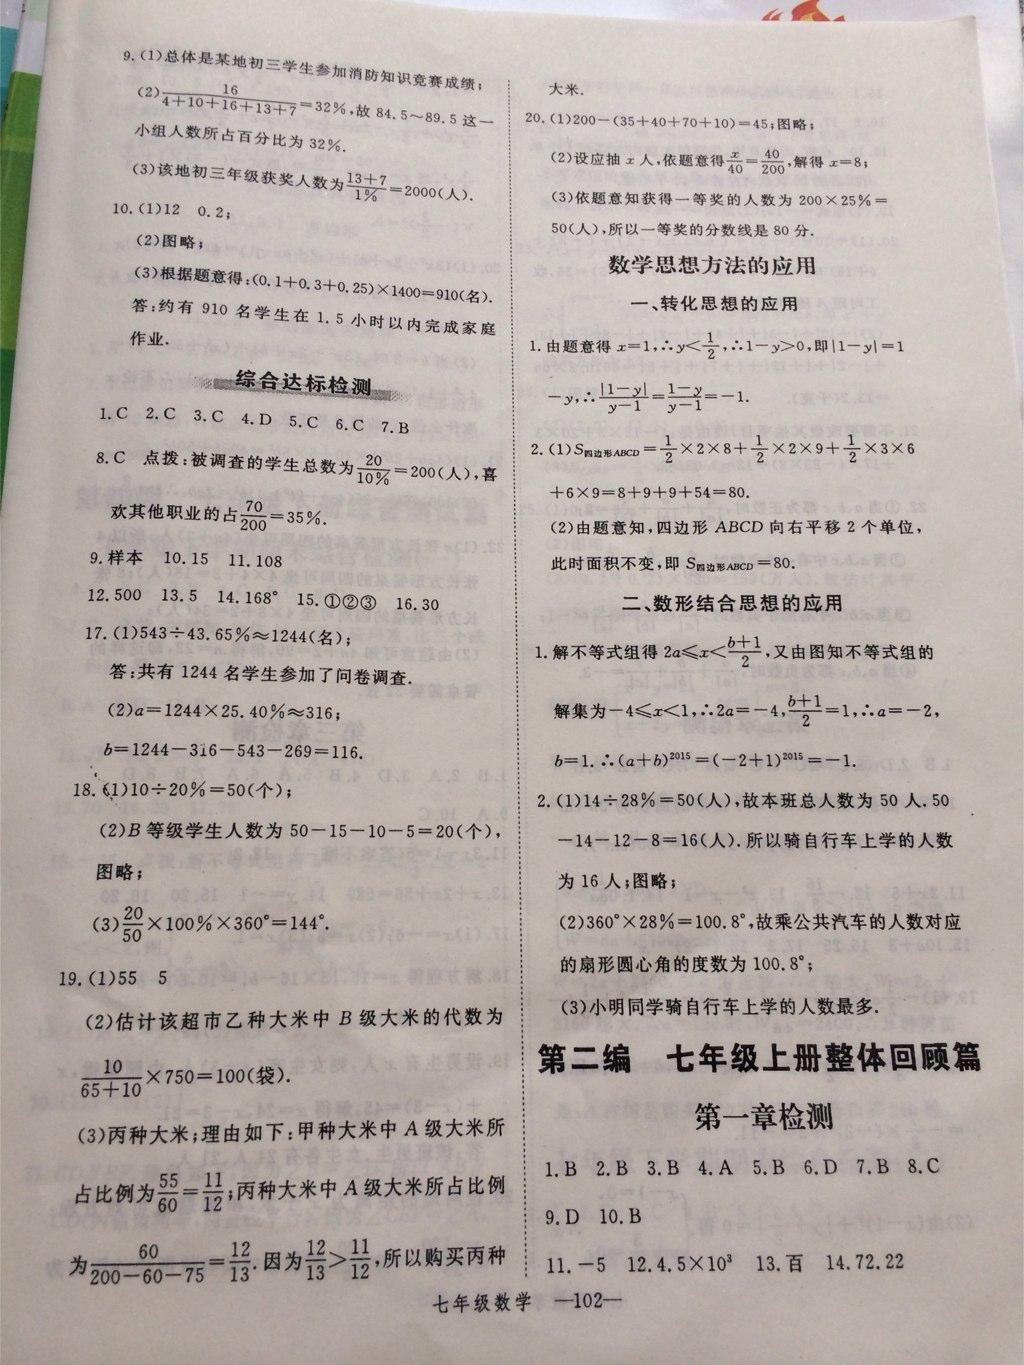 9.(1)总体是某地初三学生参加消防知识竞赛成绩;
(2)16/(4+10+16+13+7)=32%,故 84.5～89.5 这一
小组人数所占百分比为 32%.
(3)该地初三年级获奖人数为(13+7)/1%=2000(人).
10.(1)12 0.2;
(2)图略;
(3)根据题意得:(0.1+0.3+0.25)×1400=910(名).
答:约有 910 名学生在 1.5 小时以内完成家庭
作业.
综合达标检测
1.C 2.C 3.C 4.D 5.C 6.C 7.B
8.C 点拨:被调查的学生总数为20/10%=200(人),喜
欢其他职业的占70/200=35%.
9.样本 10.15 11.108
12.500 13.5 14.168° 15.①②③ 16.30
17.(1)543÷43.65%≈1244(名);
答:共有 1244 名学生参加了问卷调查.
(2)a=1244×25.40%≈316;
b=1244-316-543-269=116.
18.(1)10÷20%=50(个);
(2)B 等级学生人数为 50-15-10-5=20(个),
图略;
(3)20/50×100%×360°=144°.
19.(1)55 5
(2)估计该超市乙种大米中 B 级大米的代数为
10/(65+10)×750=100(袋).
(3)丙种大米;理由如下:甲种大米中 A 级大米所
占比例为55/60=11/12;丙种大米中 A 级大米所占比例
为60/(200-60-75)=12/13.因为12/13>11/12,所以购买丙种
大米.
20.(1)200-(35+40+70+10)=45;图略;
(2)设应抽 x 人,依题意得x/40=40/200,解得 x=8;
(3)依题意知获得一等奖的人数为 200×25%=
50(人),所以一等奖的分数线是 80 分.
数学思想方法的应用
一、转化思想的应用
1.由题意得 x=1,∴y<1/2,∴1-y>0,即|1-y|=1
-y,∴|1-y|/(y-1)=(1-y)/(y-1)=-1.
2.(1)S四边形ABCD=1/2×2×8+1/2×2×9+1/2×3×6
+6×9=8+9+9+54=80.
(2)由题意知,四边形 ABCD 向右平移 2 个单位,
此时面积不变,即 S四边形ABCD=80.
二、数形结合思想的应用
1.解不等式组得 2a≤x<(b+1)/2,又由图知不等式组的
解集为-4≤x<1,∴2a=-4,(b+1)/2=1,∴a=-2,
b=1.∴(a+b)²⁰¹⁵=(-2+1)²⁰¹⁵=-1.
2.(1)14÷28%=50(人),故本班总人数为 50 人.50
-14-12-8=16(人).所以骑自行车上学的人数
为 16 人;图略;
(2)360°×28%=100.8°,故乘公共汽车的人数对应
的扇形圆心角的度数为 100.8°;
(3)小明同学骑自行车上学的人数最多.
第二编 七年级上册整体回顾篇
第一章检测
1.B 2.B 3.B 4.A 5.B 6.D 7.B 8.C
9.D 10.B
11.-5 12.4.5×10³ 13.百 14.72.22
七年级数学 —102—